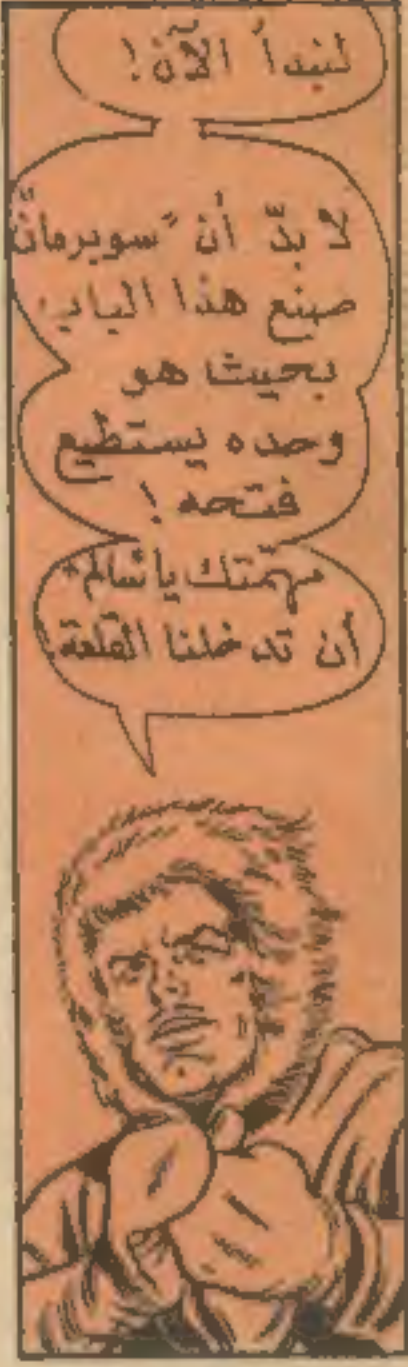 لنبدأ الآن!
لا بدّ أن "سوبرمان"
صنع هذا الباب
بحيث هو
وحده يستطيع
فتحه!
مهمّتك يا "سالم"
أن تدخلنا القلعة.